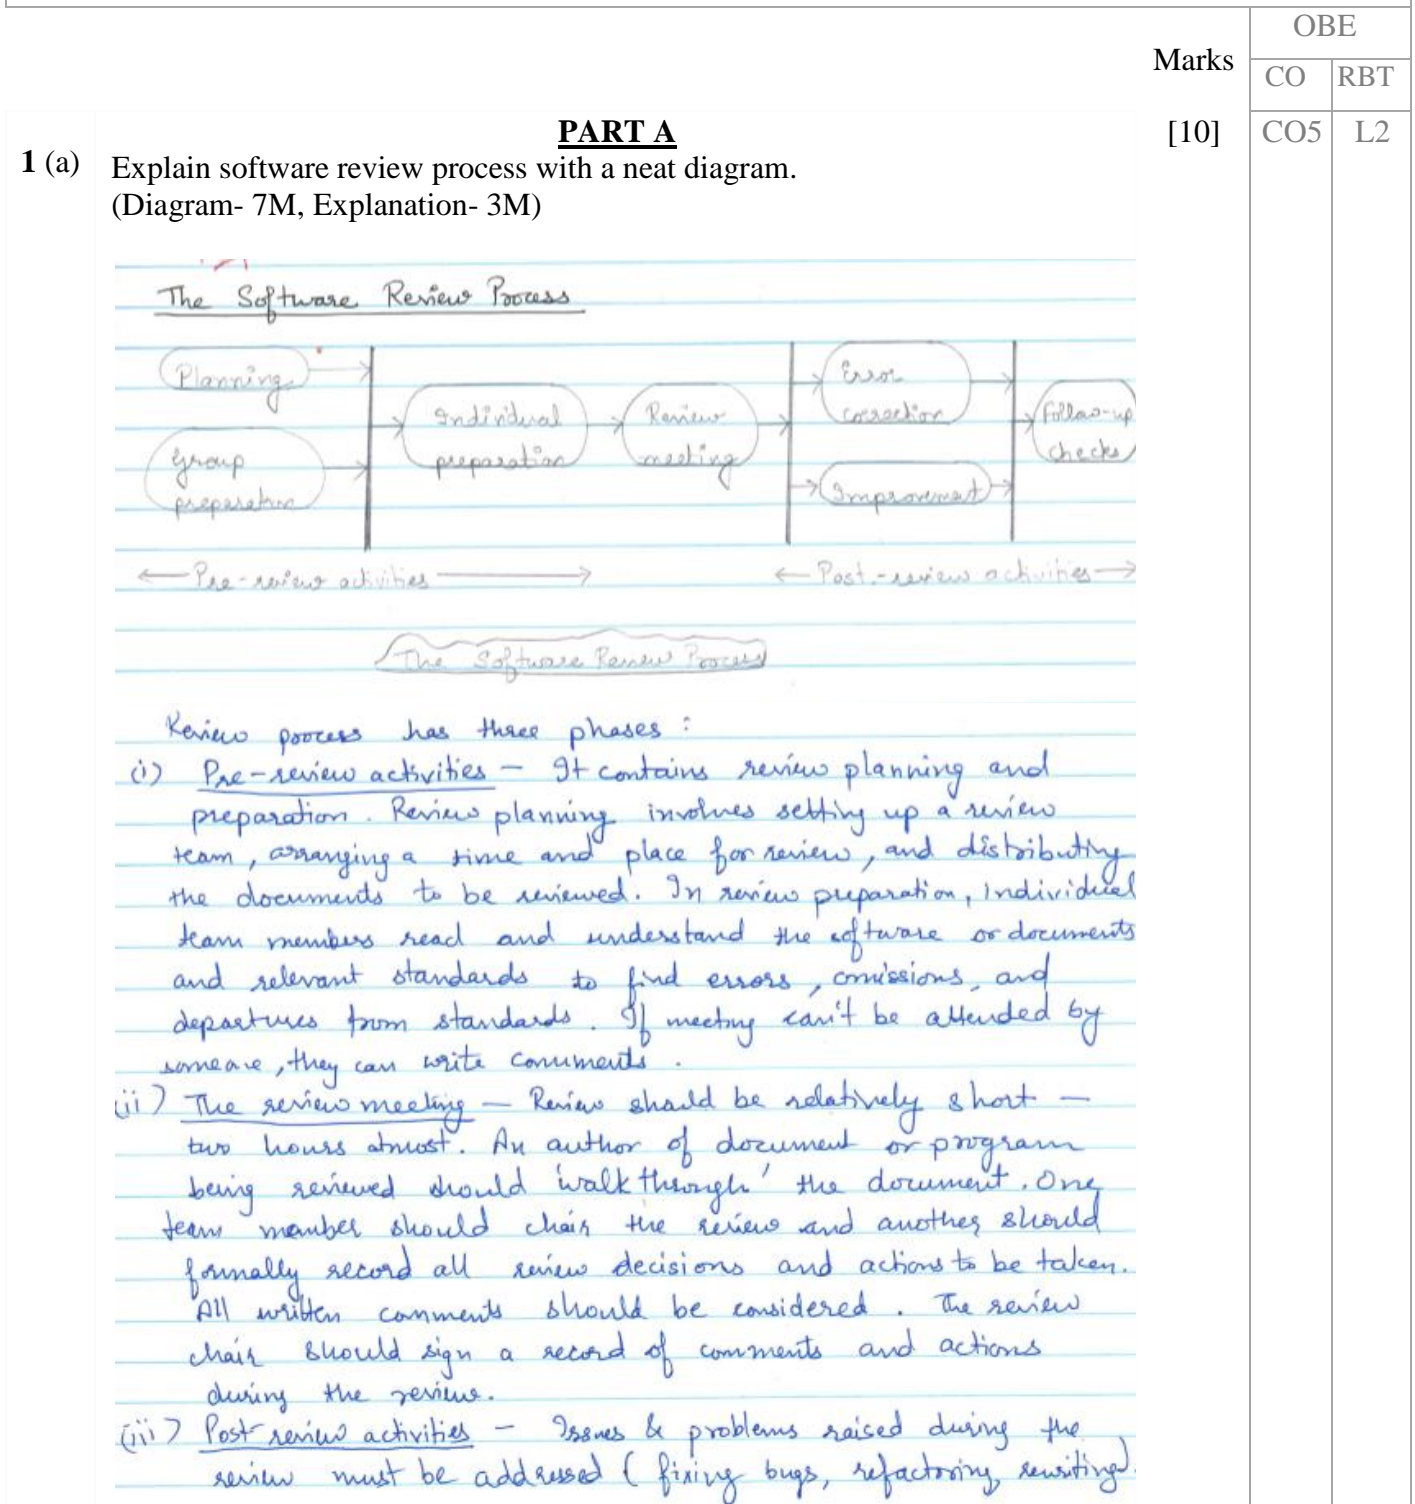 OBE
Marks
CO RBT
PART A [10] CO5 L2
1 (a) Explain software review process with a neat diagram.
(Diagram- 7M, Explanation- 3M)
The Software Review Process
Planning
Group preparation
Individual preparation
Review meeting
Error correction
Improvement
Follow-up checks
← Pre-review activities →
← Post-review activities →
The Software Review Process
Review process has three phases :
(i) Pre-review activities – It contains review planning and
preparation. Review planning involves setting up a review
team, arranging a time and place for review, and distributing
the documents to be reviewed. In review preparation, individual
team members read and understand the software or documents
and relevant standards to find errors, omissions, and
departures from standards. If meeting can't be attended by
someone, they can write comments.
(ii) The review meeting – Review should be relatively short –
two hours atmost. An author of document or program
being reviewed should 'walk through' the document. One
team member should chair the review and another should
formally record all review decisions and actions to be taken.
All written comments should be considered. The review
chair should sign a record of comments and actions
during the review.
(iii) Post review activities – Issues & problems raised during the
review must be addressed (fixing bugs, refactoring, rewriting).